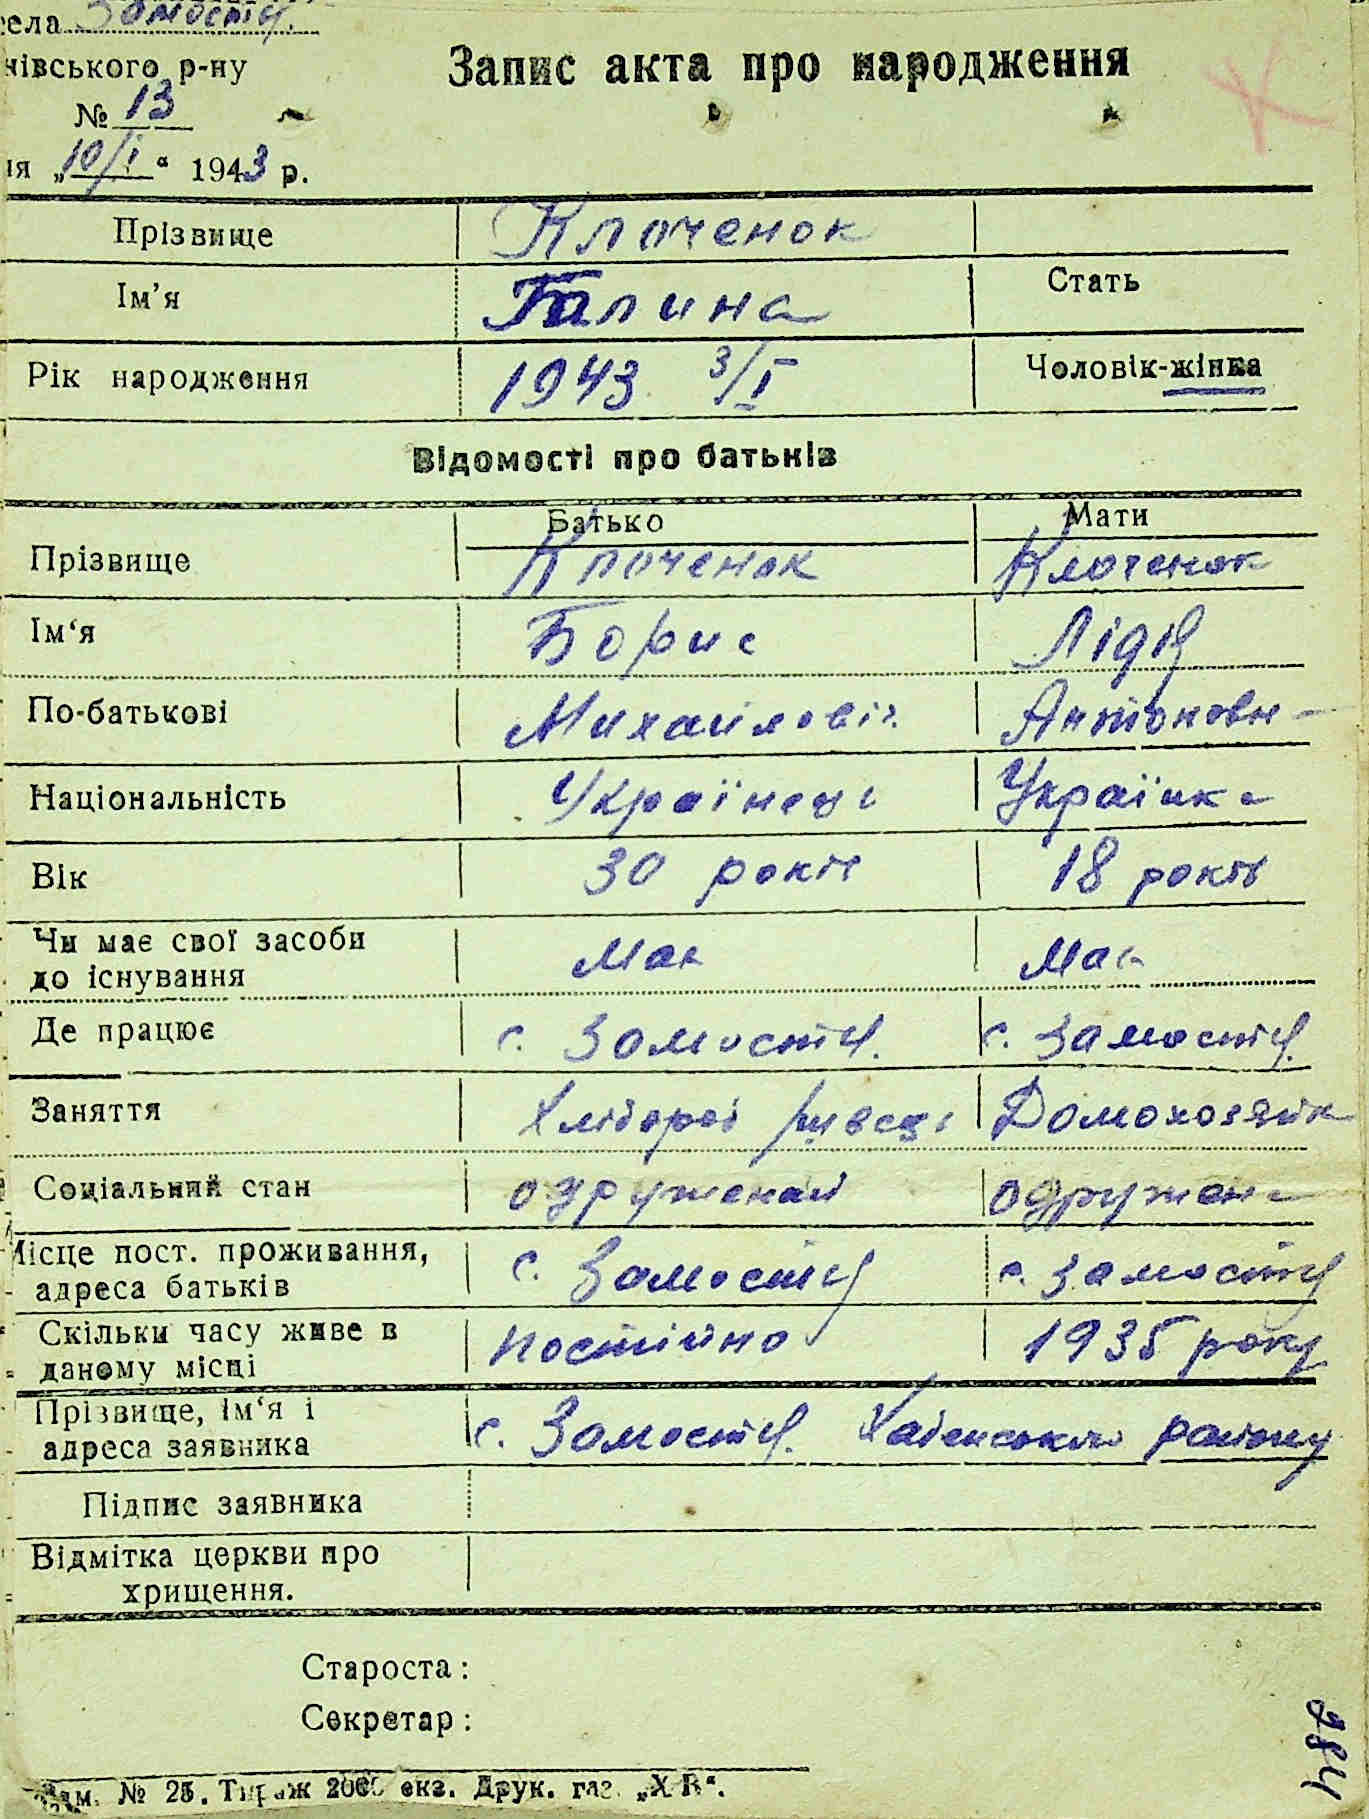 села Замостя.
нівського р-ну
Запис акта про народження
№ 13
ня „10/I“ 1943 р.
Прізвище Клоченок
Ім’я Галина Стать
Рік народження 1943 3/I Чоловік-жінка
Відомості про батьків
Батько Мати
Прізвище Клоченок Клоченок
Ім‘я Борис Лідія
По-батькові Михайлович Антоновн
Національність Українець Українка
Вік 30 років 18 років
Чи має свої засоби
до існування Має Має
Де працює с. Замостя. с. Замостя.
Заняття Хлібороб Домохозяйк
Соціальний стан одружений одружена
Місце пост. проживання,
адреса батьків с. Замостя с. Замостя
Скільки часу живе в
даному місці постійно 1935 року
Прізвище, Ім‘я і
адреса заявника с. Замостя. Хабенського району
Підпис заявника
Відмітка церкви про
хрищення.
Староста:
Секретар:
384
№ 25. Тираж 2000 екз. Друк. газ. „Х В“.